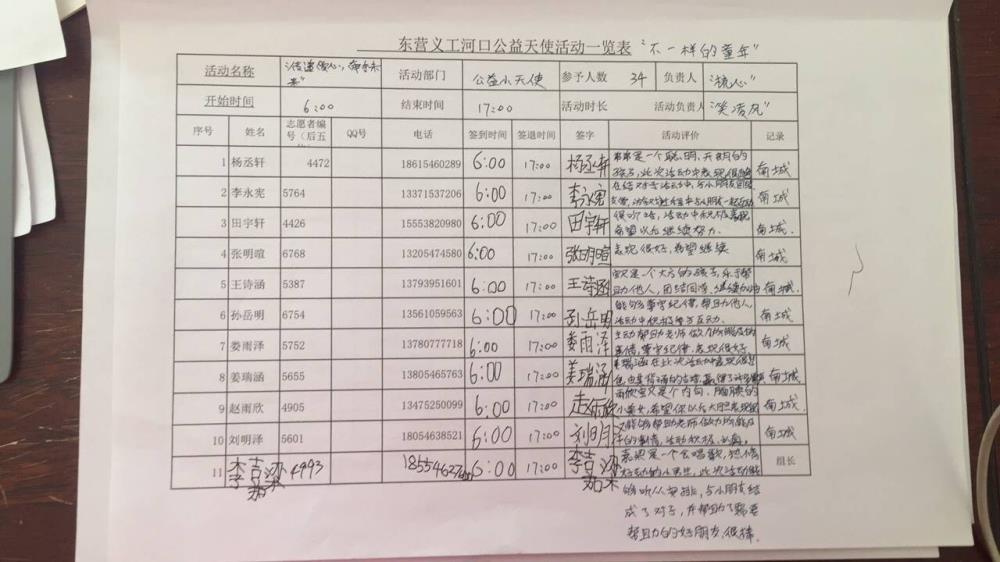 东营义工河口公益天使活动一览表 "不一样的童年"
活动名称 活动部门 公益小天使 参予人数 34 负责人
开始时间 6:00 结束时间 17:00 活动时长 活动负责人 "笑凌风"
序号 姓名 志愿者编号(后五 QQ号 电话 签到时间 签退时间 签字 活动评价 记录
1 杨丞轩 4472 18615460289 6:00 17:00 杨丞轩 是一个聪明,开朗的孩子,此次活动中表现很 南城
2 李永宪 5764 13371537206 6:00 17:00 李永宪 在结对子活动中,与小朋友 南城
3 田宇轩 4426 15553820980 6:00 17:00 田宇轩 活动中积极 希望以后继续努力. 南城.
4 张明暄 6768 13205474580 6:00 17:00 张明暄 表现很好,希望继续 南城
5 王诗涵 5387 13793951601 6:00 17:00 王诗涵 是一个大方的孩子,乐于帮助他人,团结同学, 南城.
6 孙岳明 6754 13561059563 6:00 17:00 孙岳明 能够遵守纪律,帮助他人,活动中积极 南城
7 娄雨泽 5752 13780777718 6:00 17:00 娄雨泽 主动帮助老师做 事情,遵守纪律,表现很好 南城
8 姜瑞涵 5655 13805465763 6:00 17:00 姜瑞涵 瑞涵在此次活动中表现很 南城
9 赵雨欣 4905 13475250099 6:00 17:00 赵雨欣 是个内向,腼腆的小美女,希望你以后大胆表现 南城.
10 刘明泽 5601 18054638521 6:00 17:00 刘明泽 能够帮助老师做力所能及的事情,活动积极, 南城
11 李吉 4993 6:00 17:00 李吉 是一个会唱歌,热情 此次活动能 组长
够听从安排,与小朋友结
成了对子,并帮助了需要
帮助的好朋友,很棒.